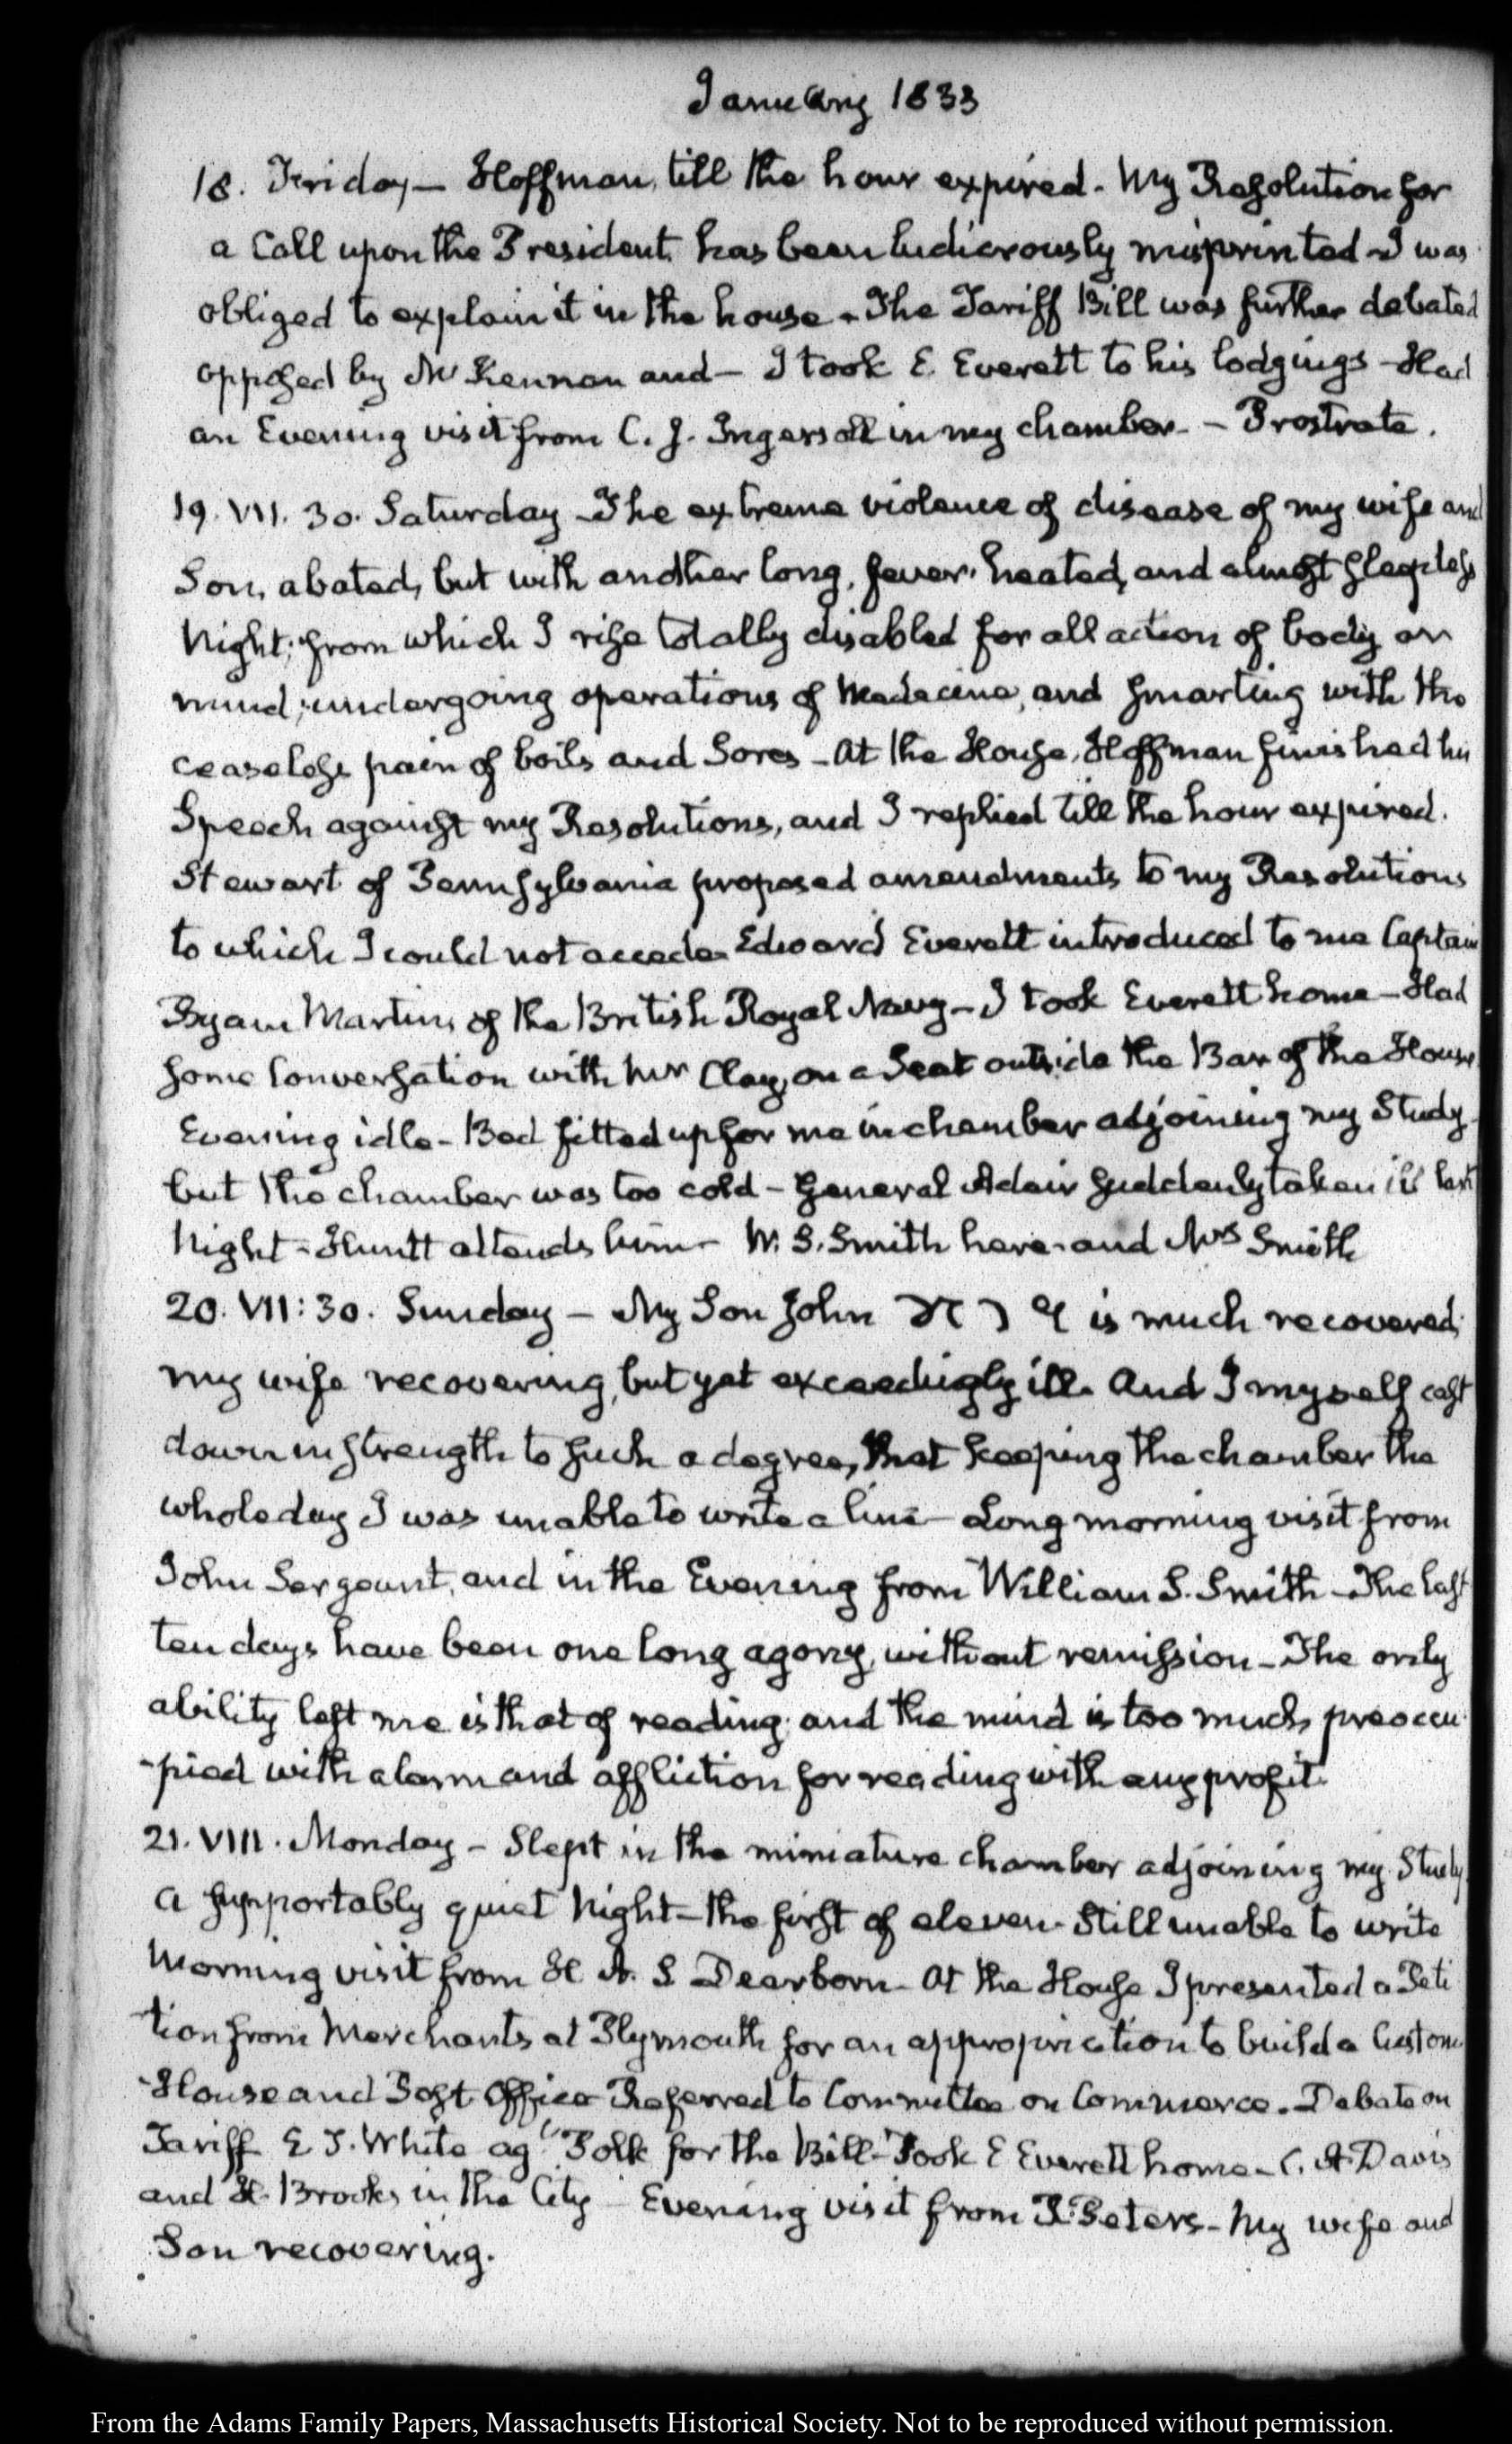 January 1833
18. Friday — Hoffman, till the hour expired. My Resolution for
a Call upon the President, has been ludicrously misprinted - I was
obliged to explain it in the house - The Tariff Bill was further debated
opposed by McKennan and — I took E. Everett to his lodgings - Had
an Evening visit from C. J. Ingersoll in my chamber. - Prostrate.
19. VII. 30. Saturday - The extreme violence of disease of my wife and
Son, abated, but with another long, fever-heated, and almost sleepless
Night; from which I rise totally disabled for all action of body or
mind; undergoing operations of Medecine, and smarting with the
ceaseless pain of boils and Sores - At the House, Hoffman finished his
Speech against my Resolutions, and I replied till the hour expired.
Stewart of Pennsylvania proposed amendments to my Resolutions
to which I could not accede. Edward Everett introduced to me Captain
Byam Martin, of the British Royal Navy - I took Everett home - Had
some Conversation with Mr Clay, on a Seat outside the Bar of the House
Evening idle - Bed fitted up for me in chamber adjoining my Study
but the chamber was too cold - General Adair suddenly taken ill last
Night - Huntt attends him - W. S. Smith here and Mrs Smith
20. VII: 30. Sunday — My Son John is much recovered;
my wife recovering, but yet exceedingly ill. And I myself cast
down in strength to such a degree, that keeping the chamber the
whole day I was unable to write a line - Long morning visit from
John Sergeant, and in the Evening from William S. Smith - The last
ten days have been one long agony, without remission - The only
ability left me is that of reading; and the mind is too much preoccu-
-pied with alarm and affliction for reading with any profit.
21. VIII. Monday - Slept in the miniature chamber adjoining my Study
a supportably quiet Night - the first of eleven. Still unable to write
Morning visit from H. A. S Dearborn - At the House I presented a Peti
tion from Merchants at Plymouth for an appropriation to build a Custom
-House and Post Office Referred to Committee on Commerce. - Debate on
Tariff E D. White agt Polk for the Bill - Took E Everett home - C. A. Davis
and S. Brooks in the City - Evening visit from R. Peters - My wife and
Son recovering.
From the Adams Family Papers, Massachusetts Historical Society. Not to be reproduced without permission.